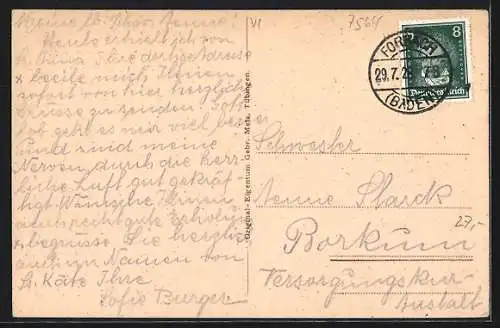 Meine lb. Schw. Aenne!
Heute erhielt ich von
Ihre dortige Adresse
& beeile mich Ihnen
sofort von hier herzliche
Grüsse zu senden. Gott
lob geht es mir viel besser
und sind meine
Nerven durch die herr-
liche Luft gut gekräf-
tigt. Wünsche Ihnen
auch recht gute Erholung
& begrüsse Sie herzlich
auch im Namen von
Käte Ihre
Sofie Burger
VI
7564
Original-Eigentum Gebr. Metz, Tübingen
FORBACH
29.7.2
(BADEN)
8
Deutsches Reich
Schwester
Aenne Starck
27,-
Borkum
Versorgungskur-
Anstalt